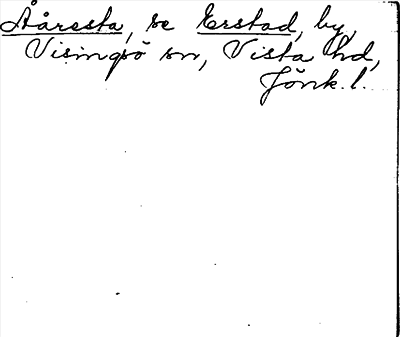 Aåresta, se Erstad, by,
Visingsö sn, Vista hd,
Jönk. l.